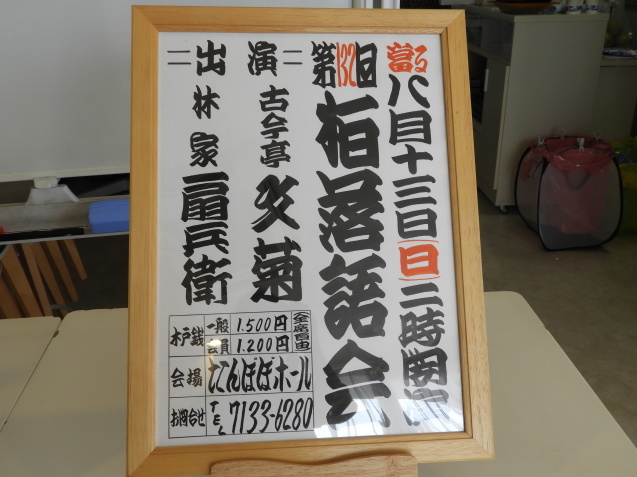 當る八月十三日(日)二時開演
第132回
柏落語会
二演二
古今亭文菊
二出二
林家扇兵衛
木戸銭 一般 1.500円 会員 1.200円 全席自由
会場 たんぽぽホール
お問合せ TEL 7133-6280